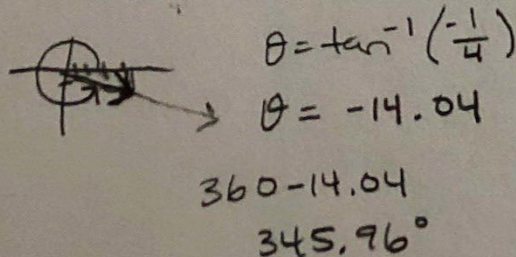 θ = tan⁻¹(-1/4)
θ = -14.04
360-14.04
345.96°